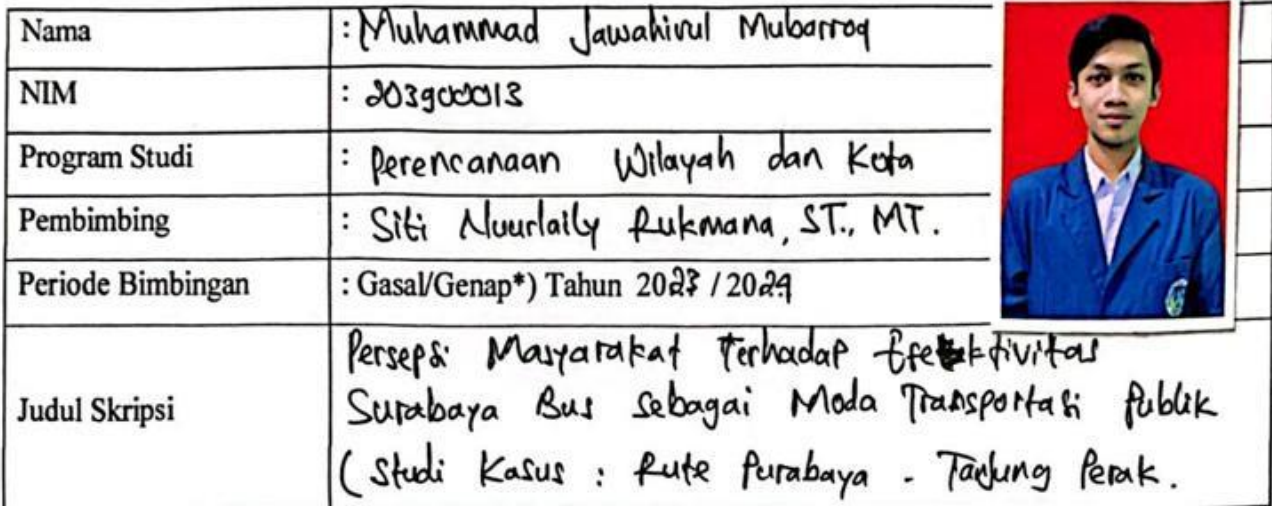 Nama : Muhammad Jawahirul Mubarroq
NIM : 203900013
Program Studi : Perencanaan Wilayah dan Kota
Pembimbing : Siti Nuurlaily Rukmana, ST., MT.
Periode Bimbingan : Gasal/Genap*) Tahun 2023 / 2024
Judul Skripsi
Persepsi Masyarakat Terhadap Efektivitas
Surabaya Bus sebagai Moda Transportasi Publik
(Studi Kasus : Rute Purabaya - Tanjung Perak.